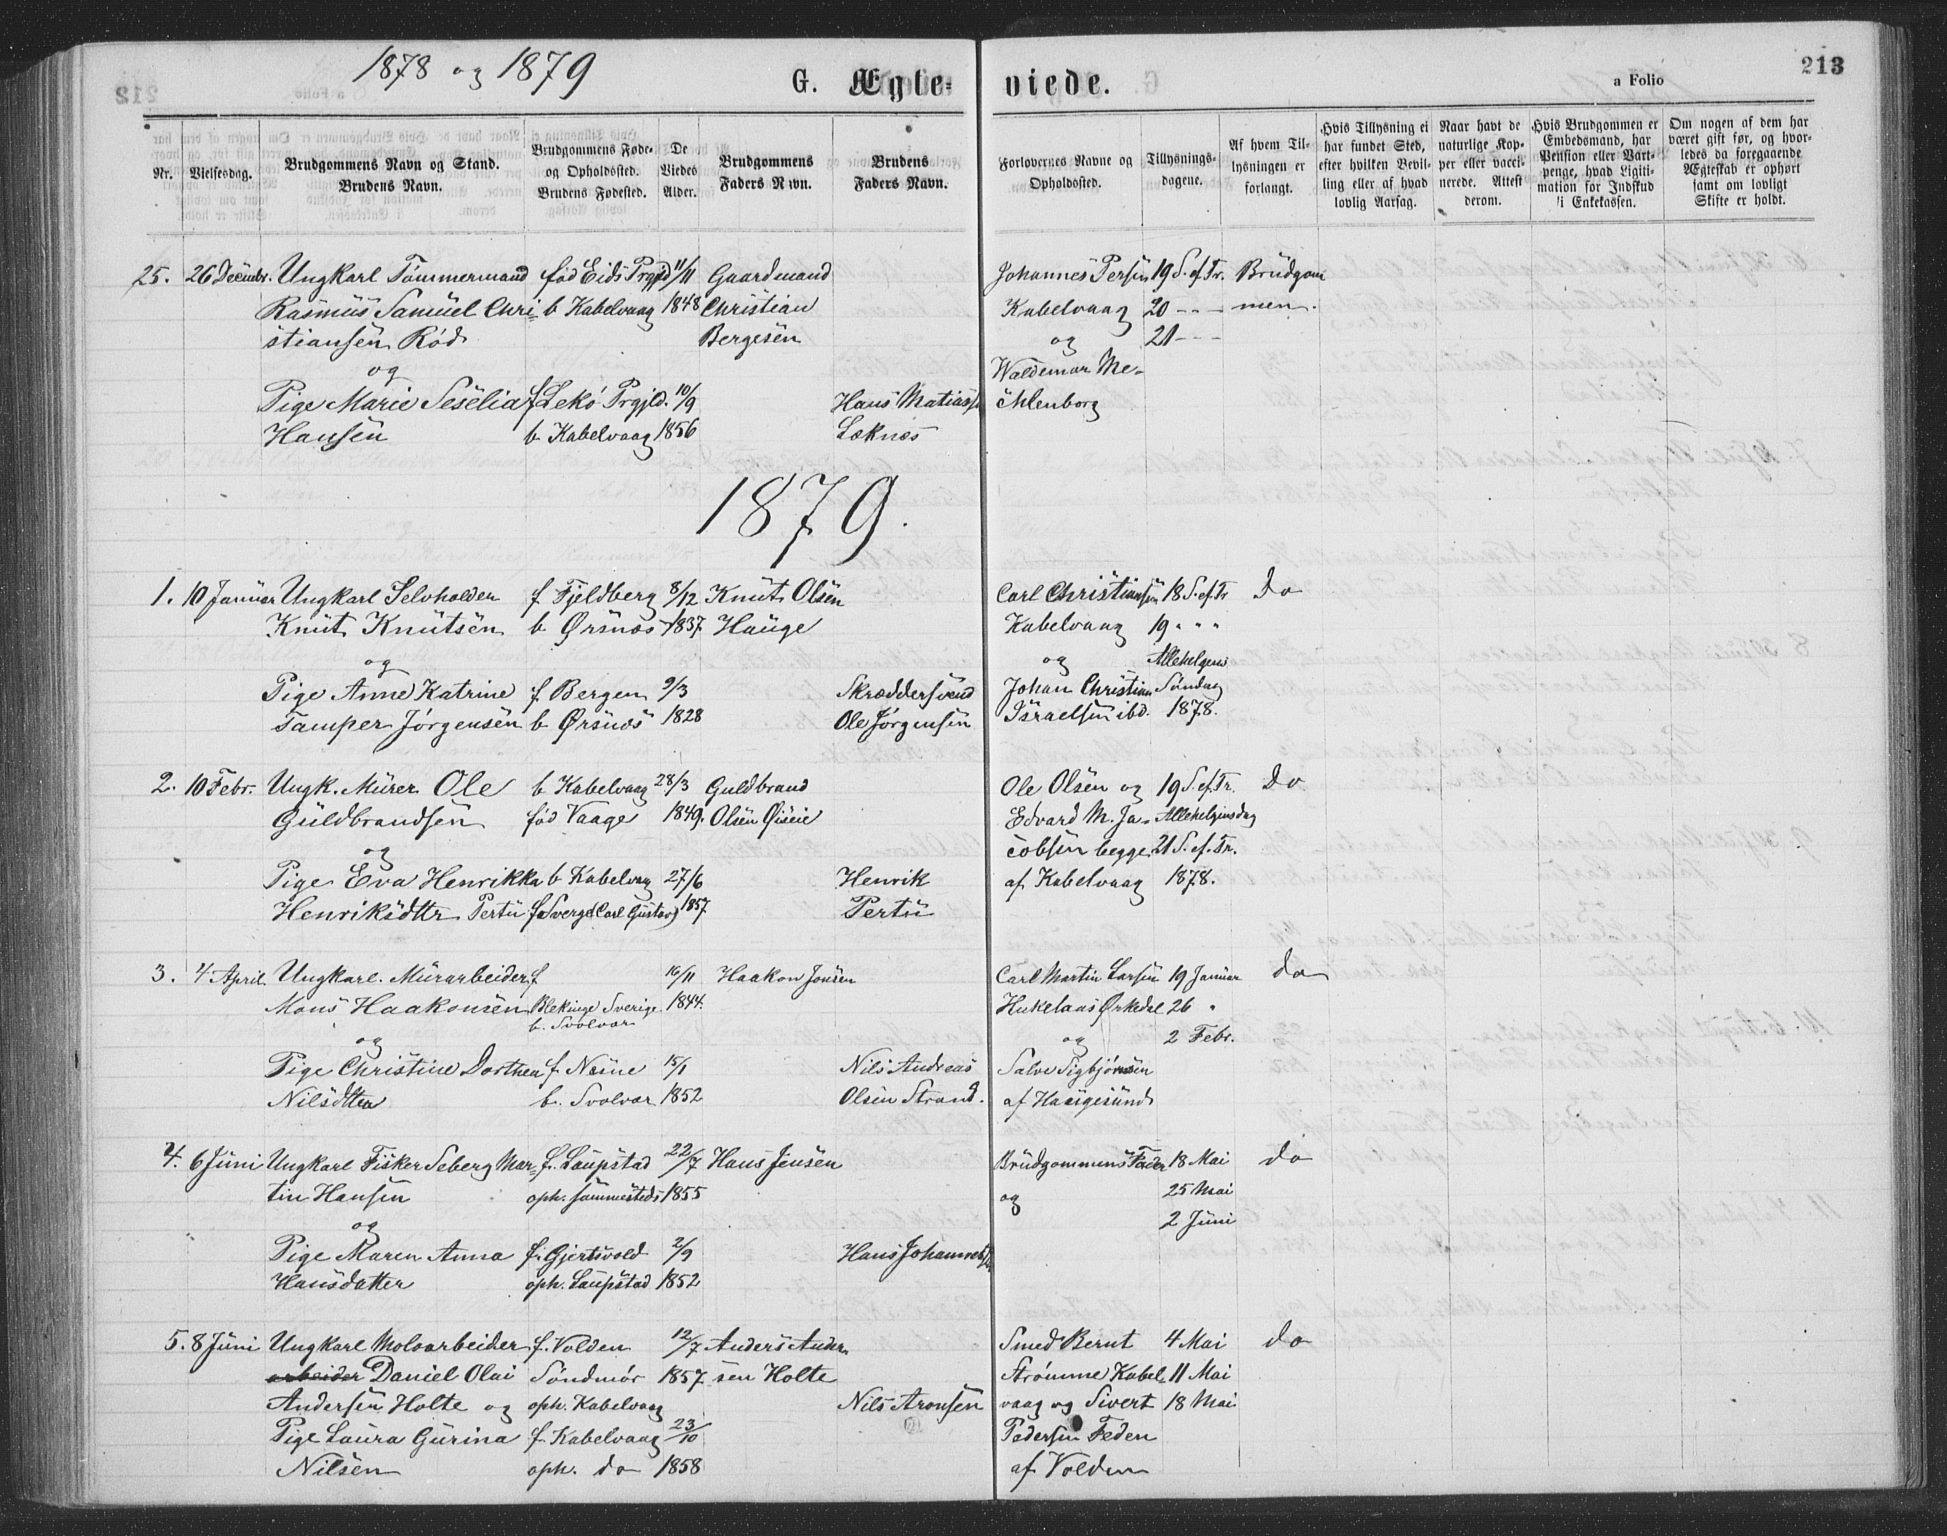 1878 og 1879
G. Ægte-
viede.
a Folio
213
Nr.
Vielsesdag.
Brudgommens Navn og Stand.
Brudens Navn.
Brudgommens Føde-
og Opholdssted.
Brudens Fødested.
De
Viedes
Alder.
Brudgommens
Faders Navn.
Brudens
Faders Navn.
Forlovernes Navne og
Opholdssted.
Tillysnings-
dagene.
Af hvem Til-
lysningen er
forlangt.
Hvis Tillysning ei
har fundet Sted,
efter hvilken Bevil-
ling eller af hvad
lovlig Aarsag.
Naar havt de
naturlige Kop-
per eller vacci-
nerede. Attest
derom.
Hvis Brudgommen er
Embedsmand, har
Pension eller Vart-
penge, hvad Ligiti-
mation for Indskud
i Enkekassen.
Om nogen af dem har
været gift før, og hvor-
ledes da foregaaende
Ægteskab er ophørt
samt om lovligt
Skifte er holdt.
25. 26 Decembr. Ungkarl Tømmermand fød Eids Prgjld 11/11 Gaardmand Johannes Persen 19 S. ef. Tr. Brudgom
Rasmus Samuel Chri- b Kabelvaag 1848 Christian Kabelvaag 20 - - - men.
stiansen Rød Bergesen og 21 - - -
og Waldemar Me-
Pige Marie Seselia f Lekø Prgjld. 10/9 Hans Matiass. chlenborg
Hansen b Kabelvaag 1856 Læknes
1879.
1. 10 Januar Ungkarl Selvholden f Fjeldberg 8/12 Knut Olsen Carl Christiansen 18 S. ef. Tr do
Knut Knutsen b Ørsnes 1837 Hauge Kabelvaag 19 " "
og og Allehelgens
Pige Anne Katrine f. Bergen 9/3 Skræddersvend Johan Christian Søndag
Tamper Jørgensen b Ørsnes 1828 Ole Jørgensen Israelsen ibd. 1878.
2. 10 Febr. Ungk. Murer Ole b Kabelvaag 28/3 Guldbrand Ole Olsen og 19 S. ef. Tr. do
Guldbrandsen fød Vaage 1849. Olsen Øiseie Edvard M. Ja- Allehelgensdag
og cobsen begge 21 S. ef. Tr.
Pige Eva Henrikka b Kabelvaag 27/6 Henrik af Kabelvaag 1878.
Henriksdttr Pertu f Sverge (Carl Gustav) 1857 Pertu
3. 4 April. Ungkarl. Murarbeider f 16/11 Haakon Jonsen Carl Martin Larsen 19 Januar do
Mons Haakonsen Blekinge Sverige 1844. Hukelaas Ørkedal 26 "
b. Svolvær
og og 2 Febr.
Pige Christine Dorthea f. Nesne 15/1 Nils Andreas Salve Sigbjørnsen
Nilsdtter b. Svolvær 1852 Olsen Strand. af Haugesund
4. 6 Juni Ungkarl Fisker Seberg Mar- f. Laupstad 22/7 Hans Jensen Brudgommens Fader 18 Mai do
tin Hansen oph. sammesteds 1855 og 25 Mai
og 2 Juni
Pige Maren Anna f. Gjertsvold 2/9 Hans Johannes.
Hansdatter oph. Laupstad 1852
5. 8 Juni Ungkarl Moloarbeider f. Volden 12/7 Anders Andr. Smed Bernt 4 Mai do
arbeider Daniel Olai Søndmør 1857 sen Holte Strømme Kabel- 11 Mai
Andersen Holte og oph. Kabelvaag Nils Aronsen vaag og Sivert 18 Mai
Pige Laura Gurina f. Kabelvaag 23/10 Pedersen Feden
Nilsen oph. do 1858 af Volden